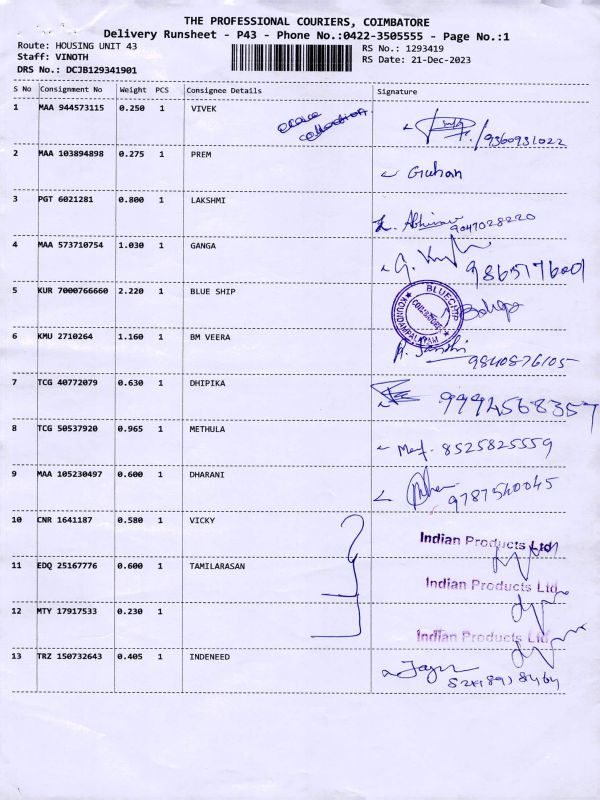 THE PROFESSIONAL COURIERS, COIMBATORE
Delivery Runsheet - P43 - Phone No.:0422-3505555 - Page No.:1
Route: HOUSING UNIT 43 RS No.: 1293419
Staff: VINOTH RS Date: 21-Dec-2023
DRS No.: DCJB129341901
S No Consignment No Weight PCS Consignee Details Signature
1 MAA 944573115 0.250 1 VIVEK
collection
9360931022
2 MAA 103894898 0.275 1 PREM
3 PGT 6021281 0.800 1 LAKSHMI
9047028220
4 MAA 573710754 1.030 1 GANGA
9865176001
5 KUR 7000766660 2.220 1 BLUE SHIP
BLUECHIP
KOUNDAMPALAYAM
6 KMU 2710264 1.160 1 BM VEERA
9840876105
7 TCG 40772079 0.630 1 DHIPIKA
9994568357
8 TCG 50537920 0.965 1 METHULA
8525825559
9 MAA 105230497 0.600 1 DHARANI
9787540045
10 CNR 1641187 0.580 1 VICKY
Indian Products Ltd
11 EDQ 25167776 0.600 1 TAMILARASAN
Indian Products Ltd
12 MTY 17917533 0.230 1
Indian Products Ltd
13 TRZ 150732643 0.405 1 INDENEED